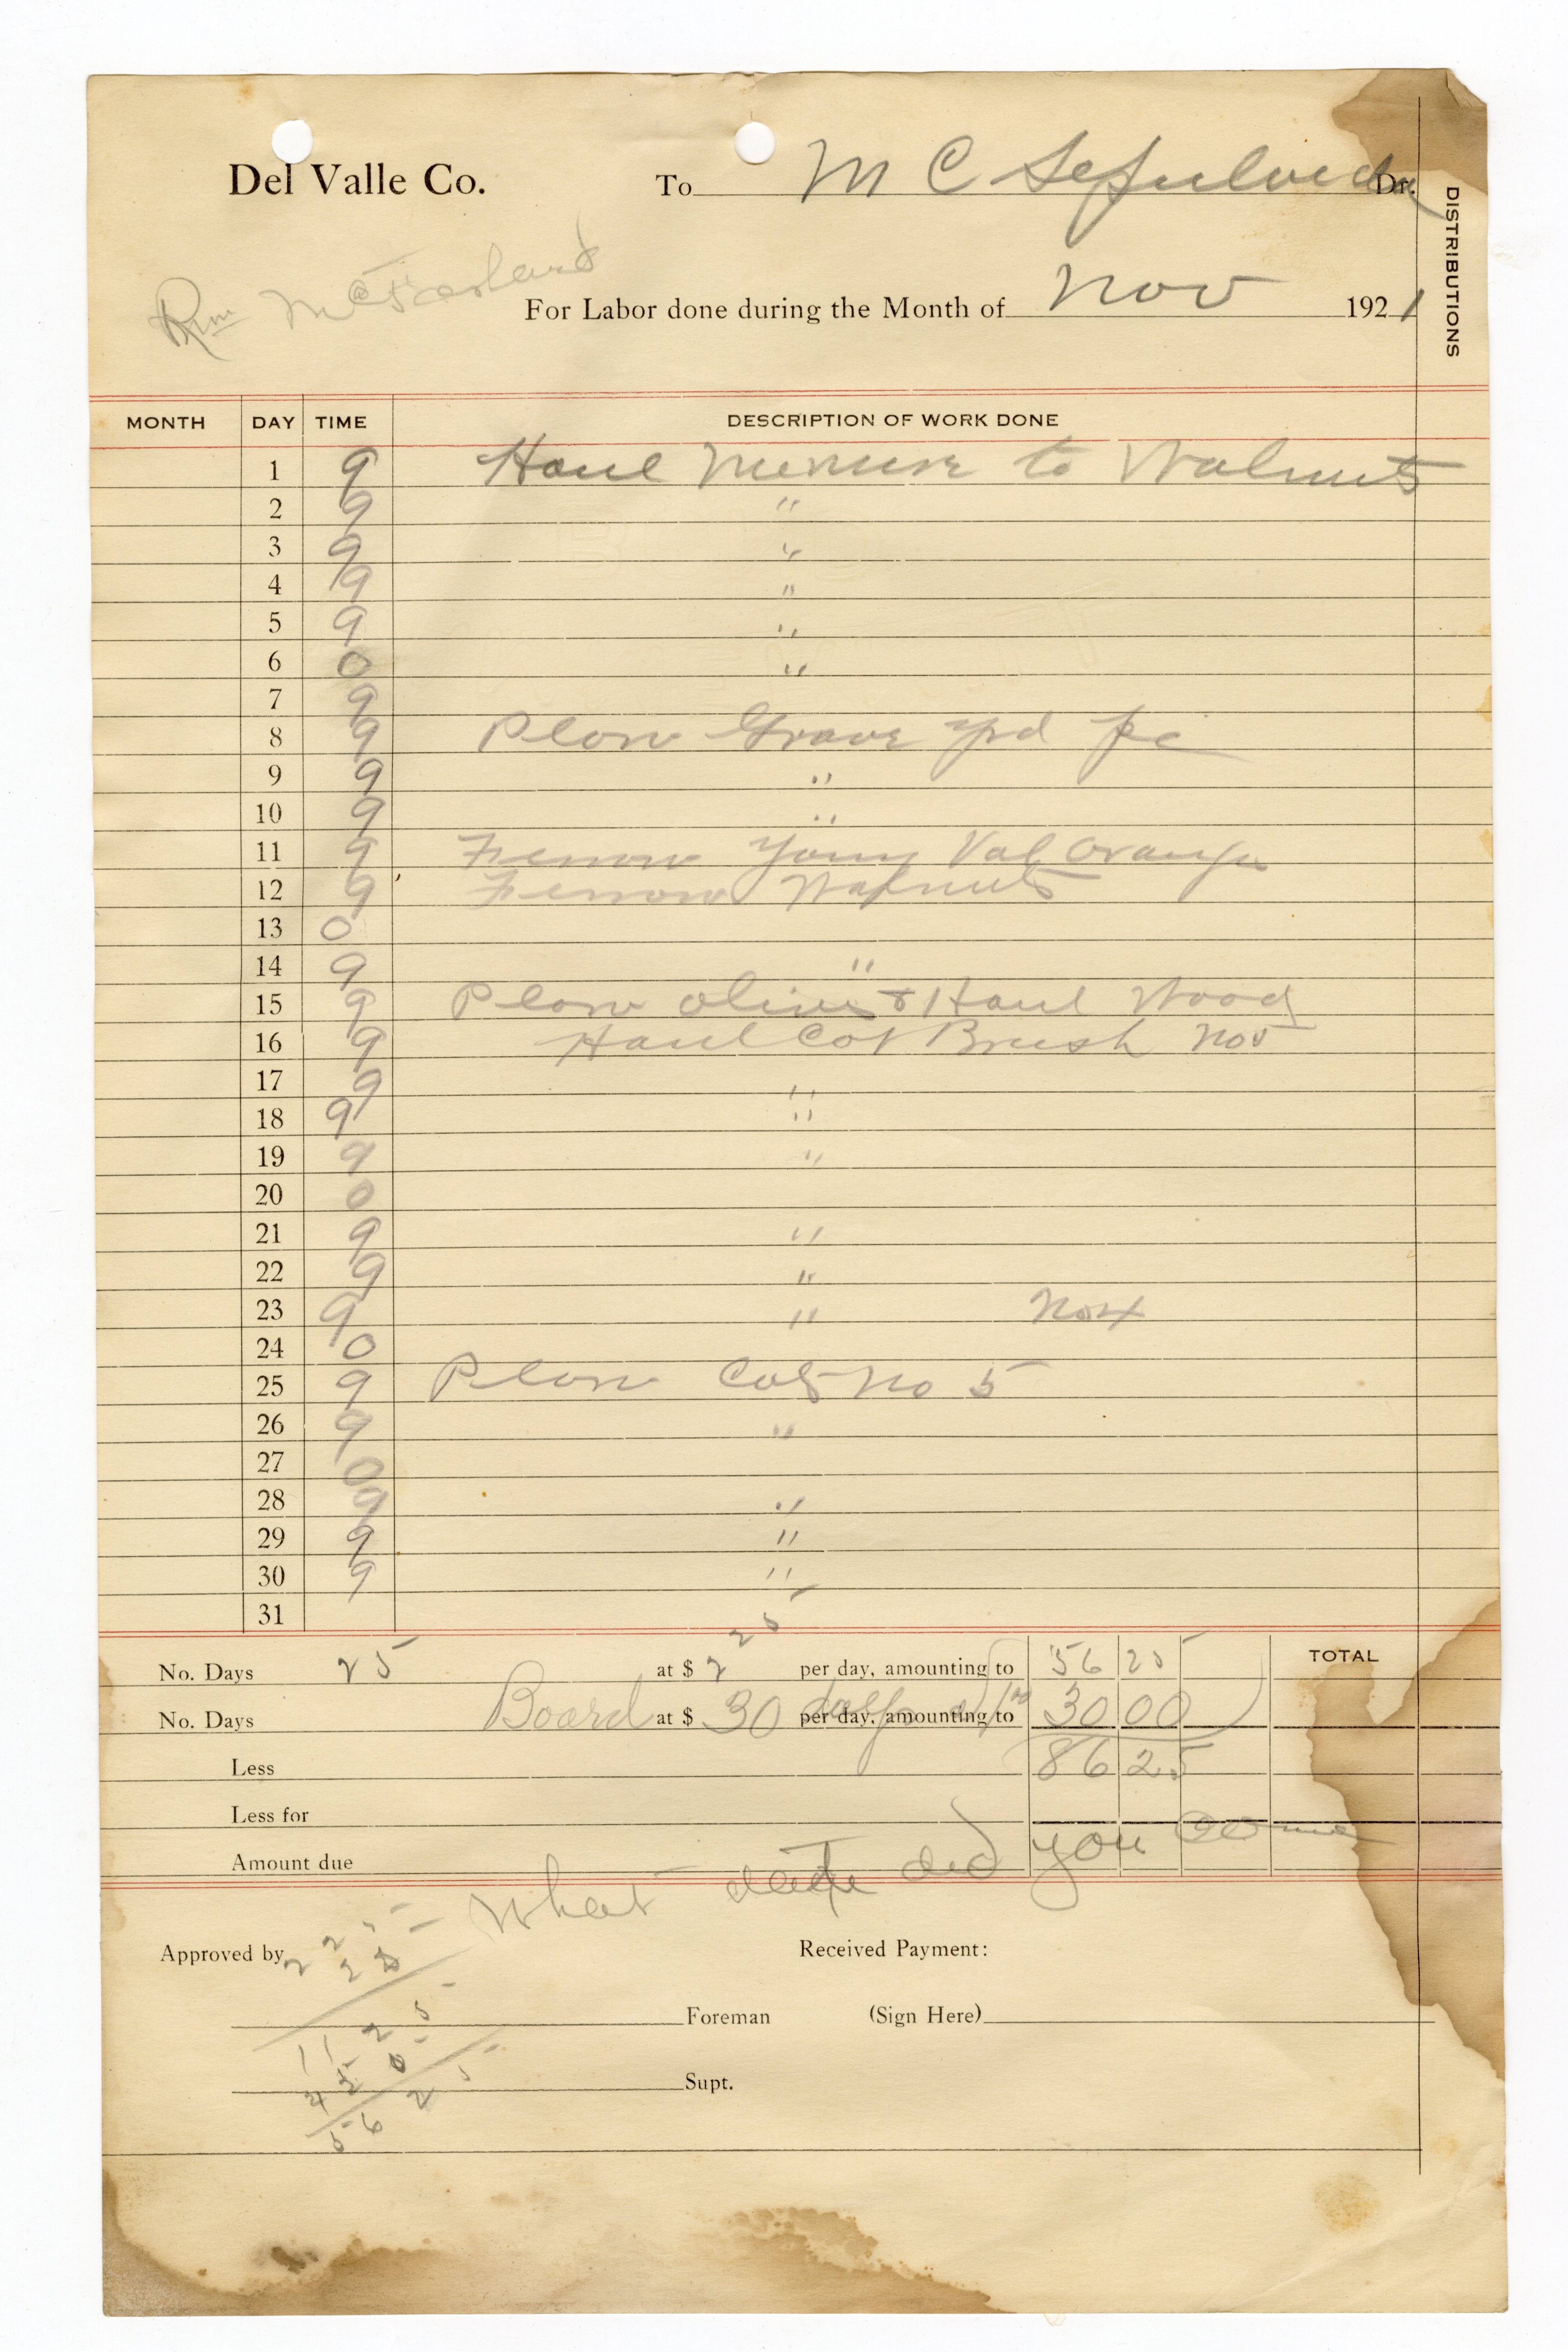 Del Valle Co. To M C Sepulveda Dr.
McFarland
For Labor done during the Month of Nov 1921
DISTRIBUTIONS
MONTH DAY TIME DESCRIPTION OF WORK DONE
1 9 Haul Menure to Walnuts
2 9 "
3 9 "
4 9 "
5 9 "
6 0 "
7 9
8 9 Plow Grave yrd pc
9 9 "
10 9 "
11 9 Ferrow Young Val Oranges
12 9 Ferrow Walnuts
13 0
14 9 "
15 9 Plow olives & Haul Wood
16 9 Haul Cot Brush No 5
17 9 "
18 9 "
19 9 "
20 0
21 9 "
22 9 "
23 9 " No 4
24 0
25 9 Plow Cots No 5
26 9 "
27 0
28 9 "
29 9 "
30 9 "
31
No. Days 25 at $ 2 25 per day, amounting to 56 25 TOTAL
No. Days Board at $ 30 days at 1 00 per day, amounting to 30 00
Less 86 25
Less for
Amount due
What date did you
Approved by Received Payment:
2 25
25
Foreman (Sign Here)
11 25
45 0
Supt.
56 25